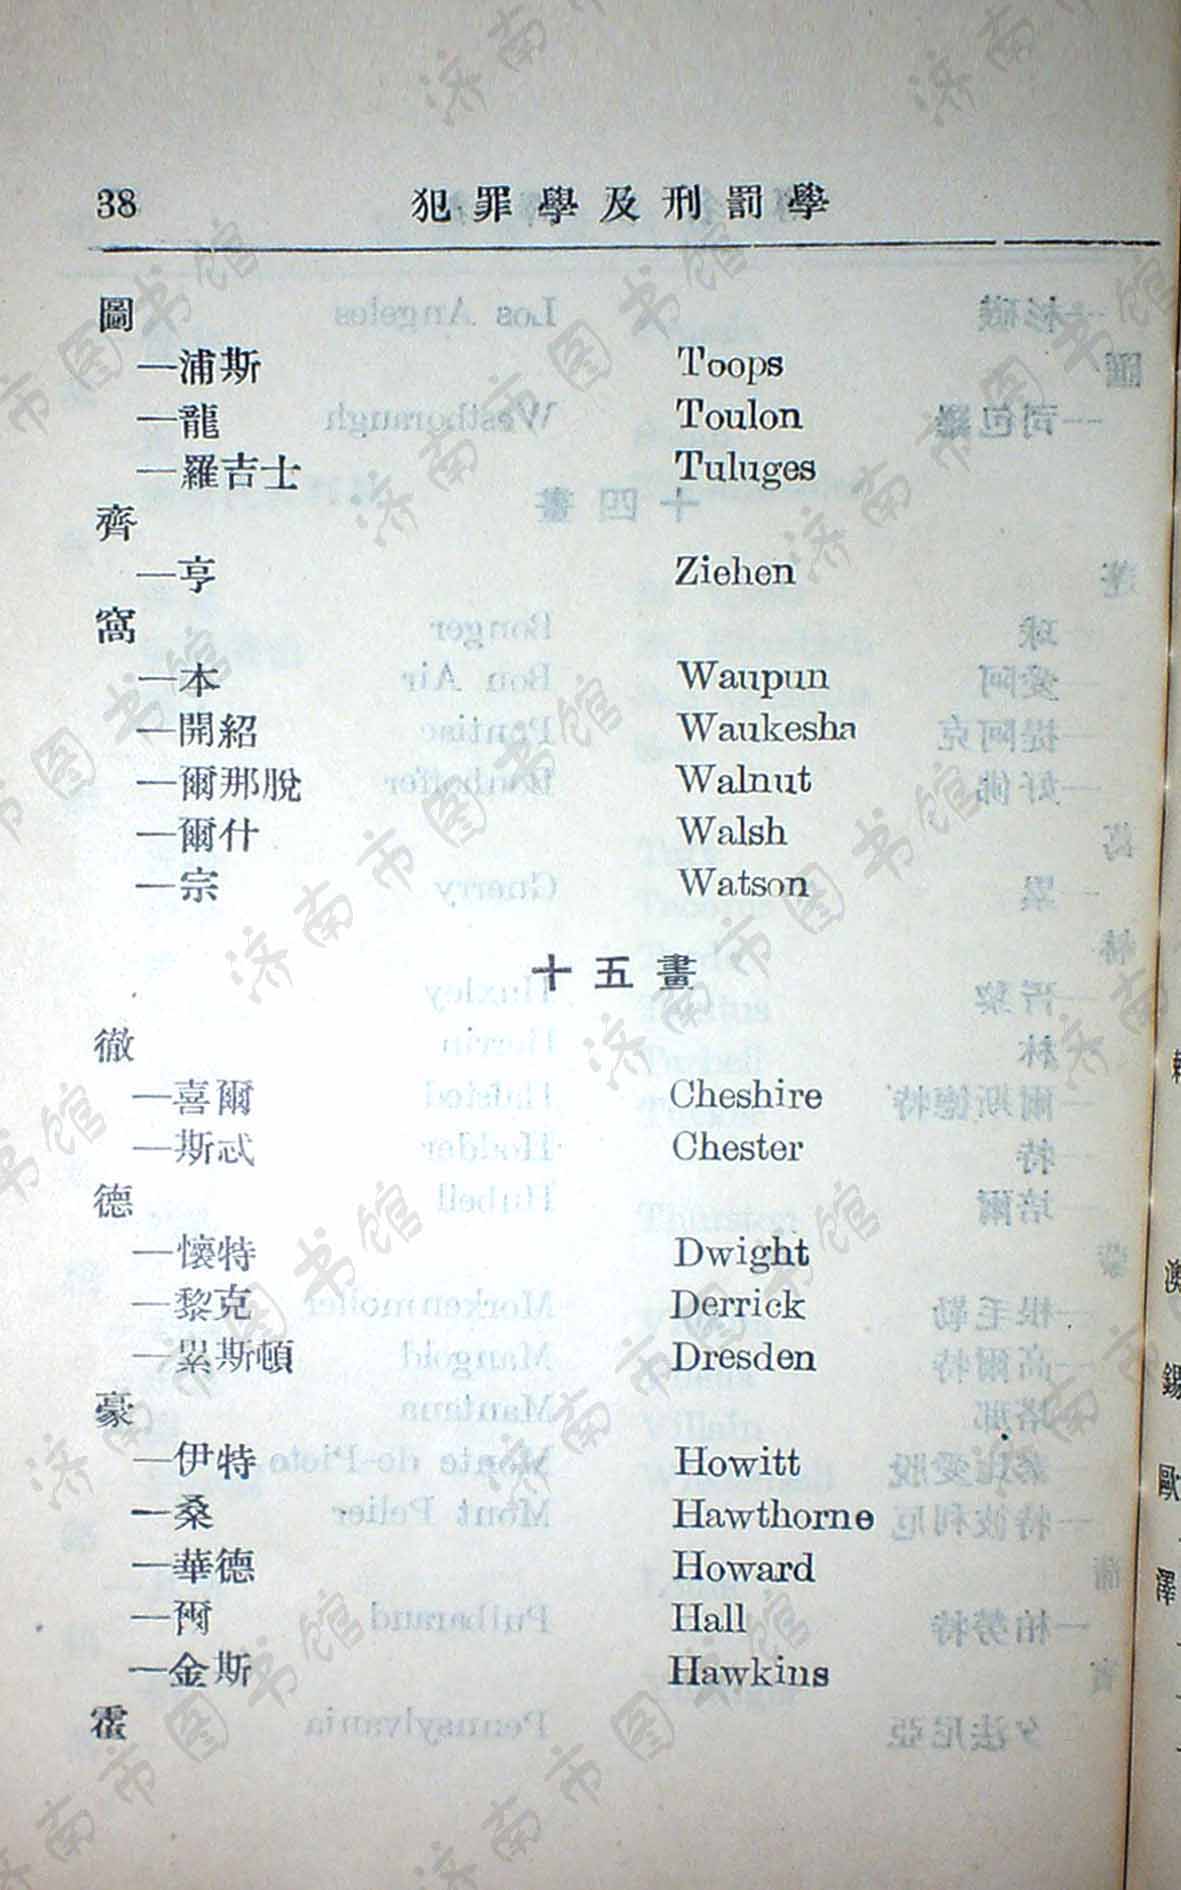 38 犯罪學及刑罰學
圖
—浦斯 Toops
—龍 Toulon
—羅吉士 Tuluges
齊
—亨 Ziehen
窩
—本 Waupun
—開紹 Waukesha
—爾那脫 Walnut
—爾什 Walsh
—宗 Watson
十五畫
徹
—喜爾 Cheshire
—斯忒 Chester
德
—懷特 Dwight
—黎克 Derrick
—累斯頓 Dresden
豪
—伊特 Howitt
—桑 Hawthorne
—華德 Howard
—爾 Hall
—金斯 Hawkins
霍
济南市图书馆